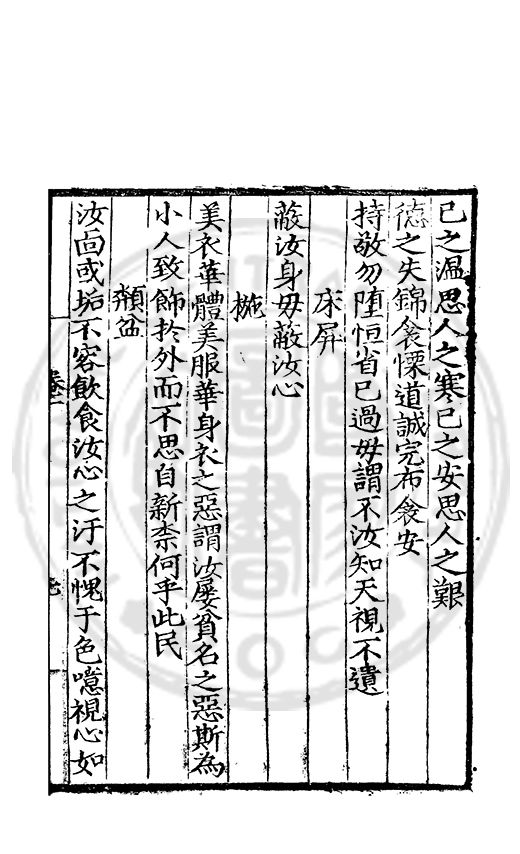 己之溫思人之寒己之安思人之艱
德之失錦衾慄道誠完布衾安
床屏
持敬勿墮恒省己過毋謂不汝知天視不遺
蔽汝身毋蔽汝心
椸
美衣華體美服華身衣之惡謂汝屢貧名之惡斯為
小人致飾於外而不思自新柰何乎此民
頮盆
汝面或垢不容飲食汝心之汙不愧于色噫視心如